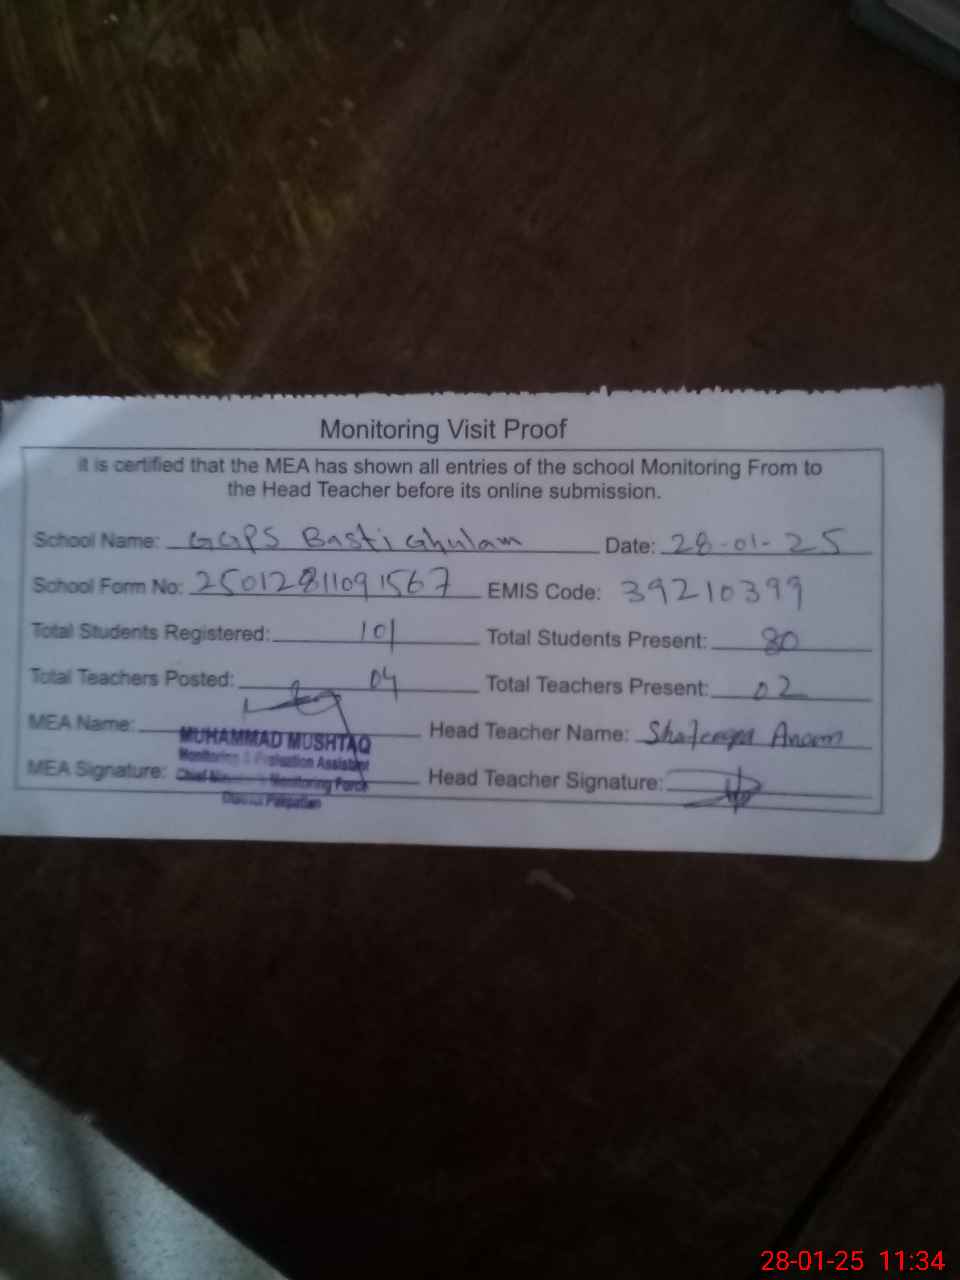 Monitoring Visit Proof
it is certified that the MEA has shown all entries of the school Monitoring From to
the Head Teacher before its online submission.
School Name: GGPS Basti Ghulam Date: 28-01-25
School Form No: 25012811091567 EMIS Code: 39210399
Total Students Registered: 101 Total Students Present: 80
Total Teachers Posted: 04 Total Teachers Present: 02
MEA Name: Head Teacher Name: Anam
MUHAMMAD MUSHTAQ
Monitoring & Evaluation Assistant
MEA Signature: Head Teacher Signature:
Chief Minister's Monitoring Force
District Pakpattan
28-01-25 11:34